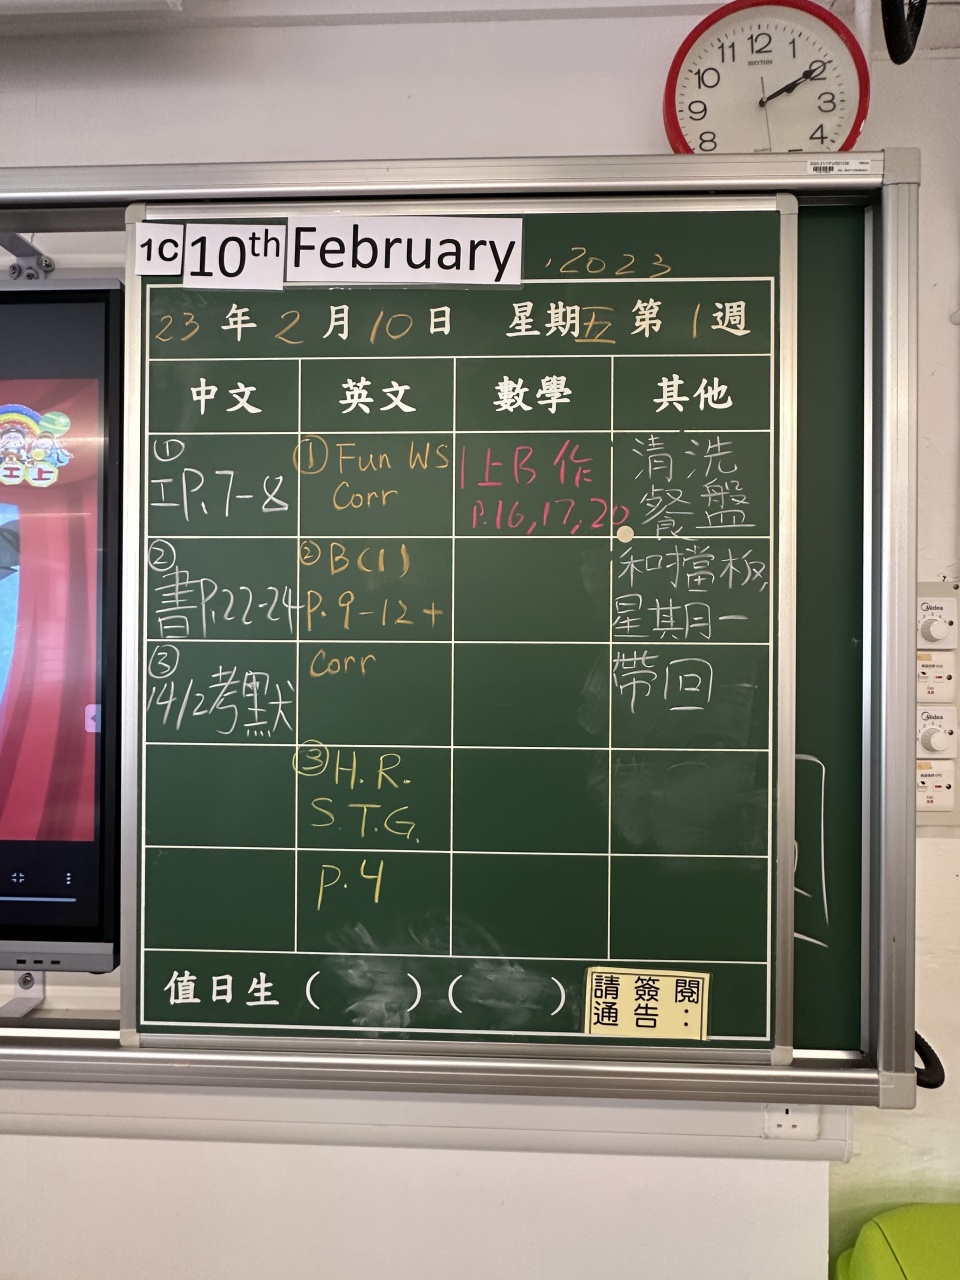 12
11 1
10 2
9 3
8 4
RHYTHM
QUARTZ
1C 10th February , 2023
23年2月10日 星期五 第1週
中文 英文 數學 其他
①
工P.7-8
②
書P.22-24
③
14/2考默
① Fun WS
Corr
② B(1)
P.9-12+
Corr
③ H.R.
S.T.G.
p.4
1上B 作
p.16,17,20
清洗
餐盤
和擋板,
星期一
帶回
值日生( )( )
請簽閱
通告:
工上
Midea
Midea